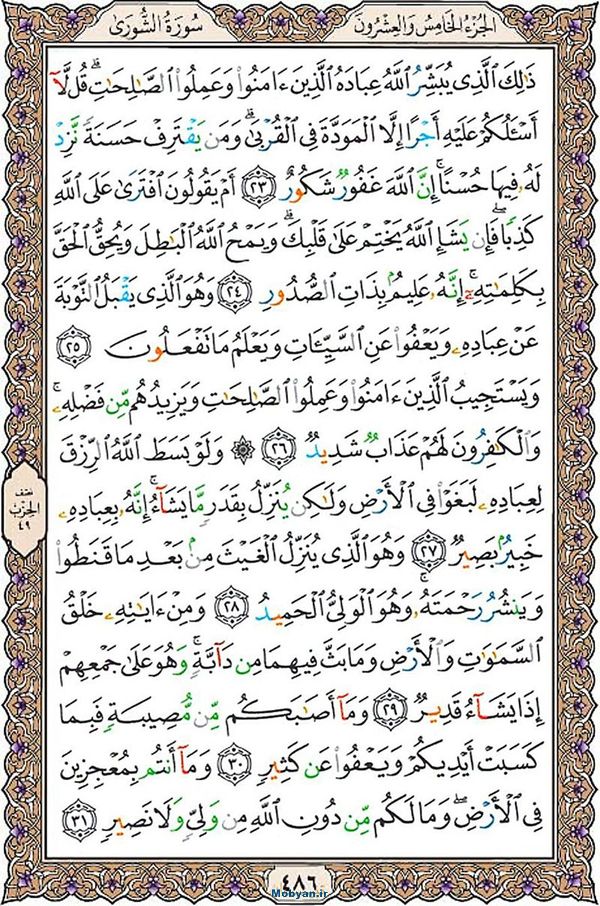 الجزء الخامس والعشرون
سورة الشورى
ذَٰلِكَ ٱلَّذِى يُبَشِّرُ ٱللَّهُ عِبَادَهُ ٱلَّذِينَ ءَامَنُوا۟ وَعَمِلُوا۟ ٱلصَّـٰلِحَـٰتِ ۗ قُل لَّآ
أَسْـَٔلُكُمْ عَلَيْهِ أَجْرًا إِلَّا ٱلْمَوَدَّةَ فِى ٱلْقُرْبَىٰ ۗ وَمَن يَقْتَرِفْ حَسَنَةً نَّزِدْ
لَهُۥ فِيهَا حُسْنًا ۚ إِنَّ ٱللَّهَ غَفُورٌ شَكُورٌ ٢٣ أَمْ يَقُولُونَ ٱفْتَرَىٰ عَلَى ٱللَّهِ
كَذِبًا ۖ فَإِن يَشَإِ ٱللَّهُ يَخْتِمْ عَلَىٰ قَلْبِكَ ۗ وَيَمْحُ ٱللَّهُ ٱلْبَـٰطِلَ وَيُحِقُّ ٱلْحَقَّ
بِكَلِمَـٰتِهِۦٓ ۚ إِنَّهُۥ عَلِيمٌۢ بِذَاتِ ٱلصُّدُورِ ٢٤ وَهُوَ ٱلَّذِى يَقْبَلُ ٱلتَّوْبَةَ
عَنْ عِبَادِهِۦ وَيَعْفُوا۟ عَنِ ٱلسَّيِّـَٔاتِ وَيَعْلَمُ مَا تَفْعَلُونَ ٢٥
وَيَسْتَجِيبُ ٱلَّذِينَ ءَامَنُوا۟ وَعَمِلُوا۟ ٱلصَّـٰلِحَـٰتِ وَيَزِيدُهُم مِّن فَضْلِهِۦ ۚ
وَٱلْكَـٰفِرُونَ لَهُمْ عَذَابٌ شَدِيدٌ ٢٦ ۞ وَلَوْ بَسَطَ ٱللَّهُ ٱلرِّزْقَ
لِعِبَادِهِۦ لَبَغَوْا۟ فِى ٱلْأَرْضِ وَلَـٰكِن يُنَزِّلُ بِقَدَرٍ مَّا يَشَآءُ ۚ إِنَّهُۥ بِعِبَادِهِۦ
خَبِيرٌۢ بَصِيرٌ ٢٧ وَهُوَ ٱلَّذِى يُنَزِّلُ ٱلْغَيْثَ مِنۢ بَعْدِ مَا قَنَطُوا۟
وَيَنشُرُ رَحْمَتَهُۥ ۚ وَهُوَ ٱلْوَلِىُّ ٱلْحَمِيدُ ٢٨ وَمِنْ ءَايَـٰتِهِۦ خَلْقُ
ٱلسَّمَـٰوَٰتِ وَٱلْأَرْضِ وَمَا بَثَّ فِيهِمَا مِن دَآبَّةٍ ۚ وَهُوَ عَلَىٰ جَمْعِهِمْ
إِذَا يَشَآءُ قَدِيرٌ ٢٩ وَمَآ أَصَـٰبَكُم مِّن مُّصِيبَةٍ فَبِمَا
كَسَبَتْ أَيْدِيكُمْ وَيَعْفُوا۟ عَن كَثِيرٍ ٣٠ وَمَآ أَنتُم بِمُعْجِزِينَ
فِى ٱلْأَرْضِ ۖ وَمَا لَكُم مِّن دُونِ ٱللَّهِ مِن وَلِىٍّ وَلَا نَصِيرٍ ٣١
نصف
الحزب
٤٩
٤٨٦
Mobyan.ir